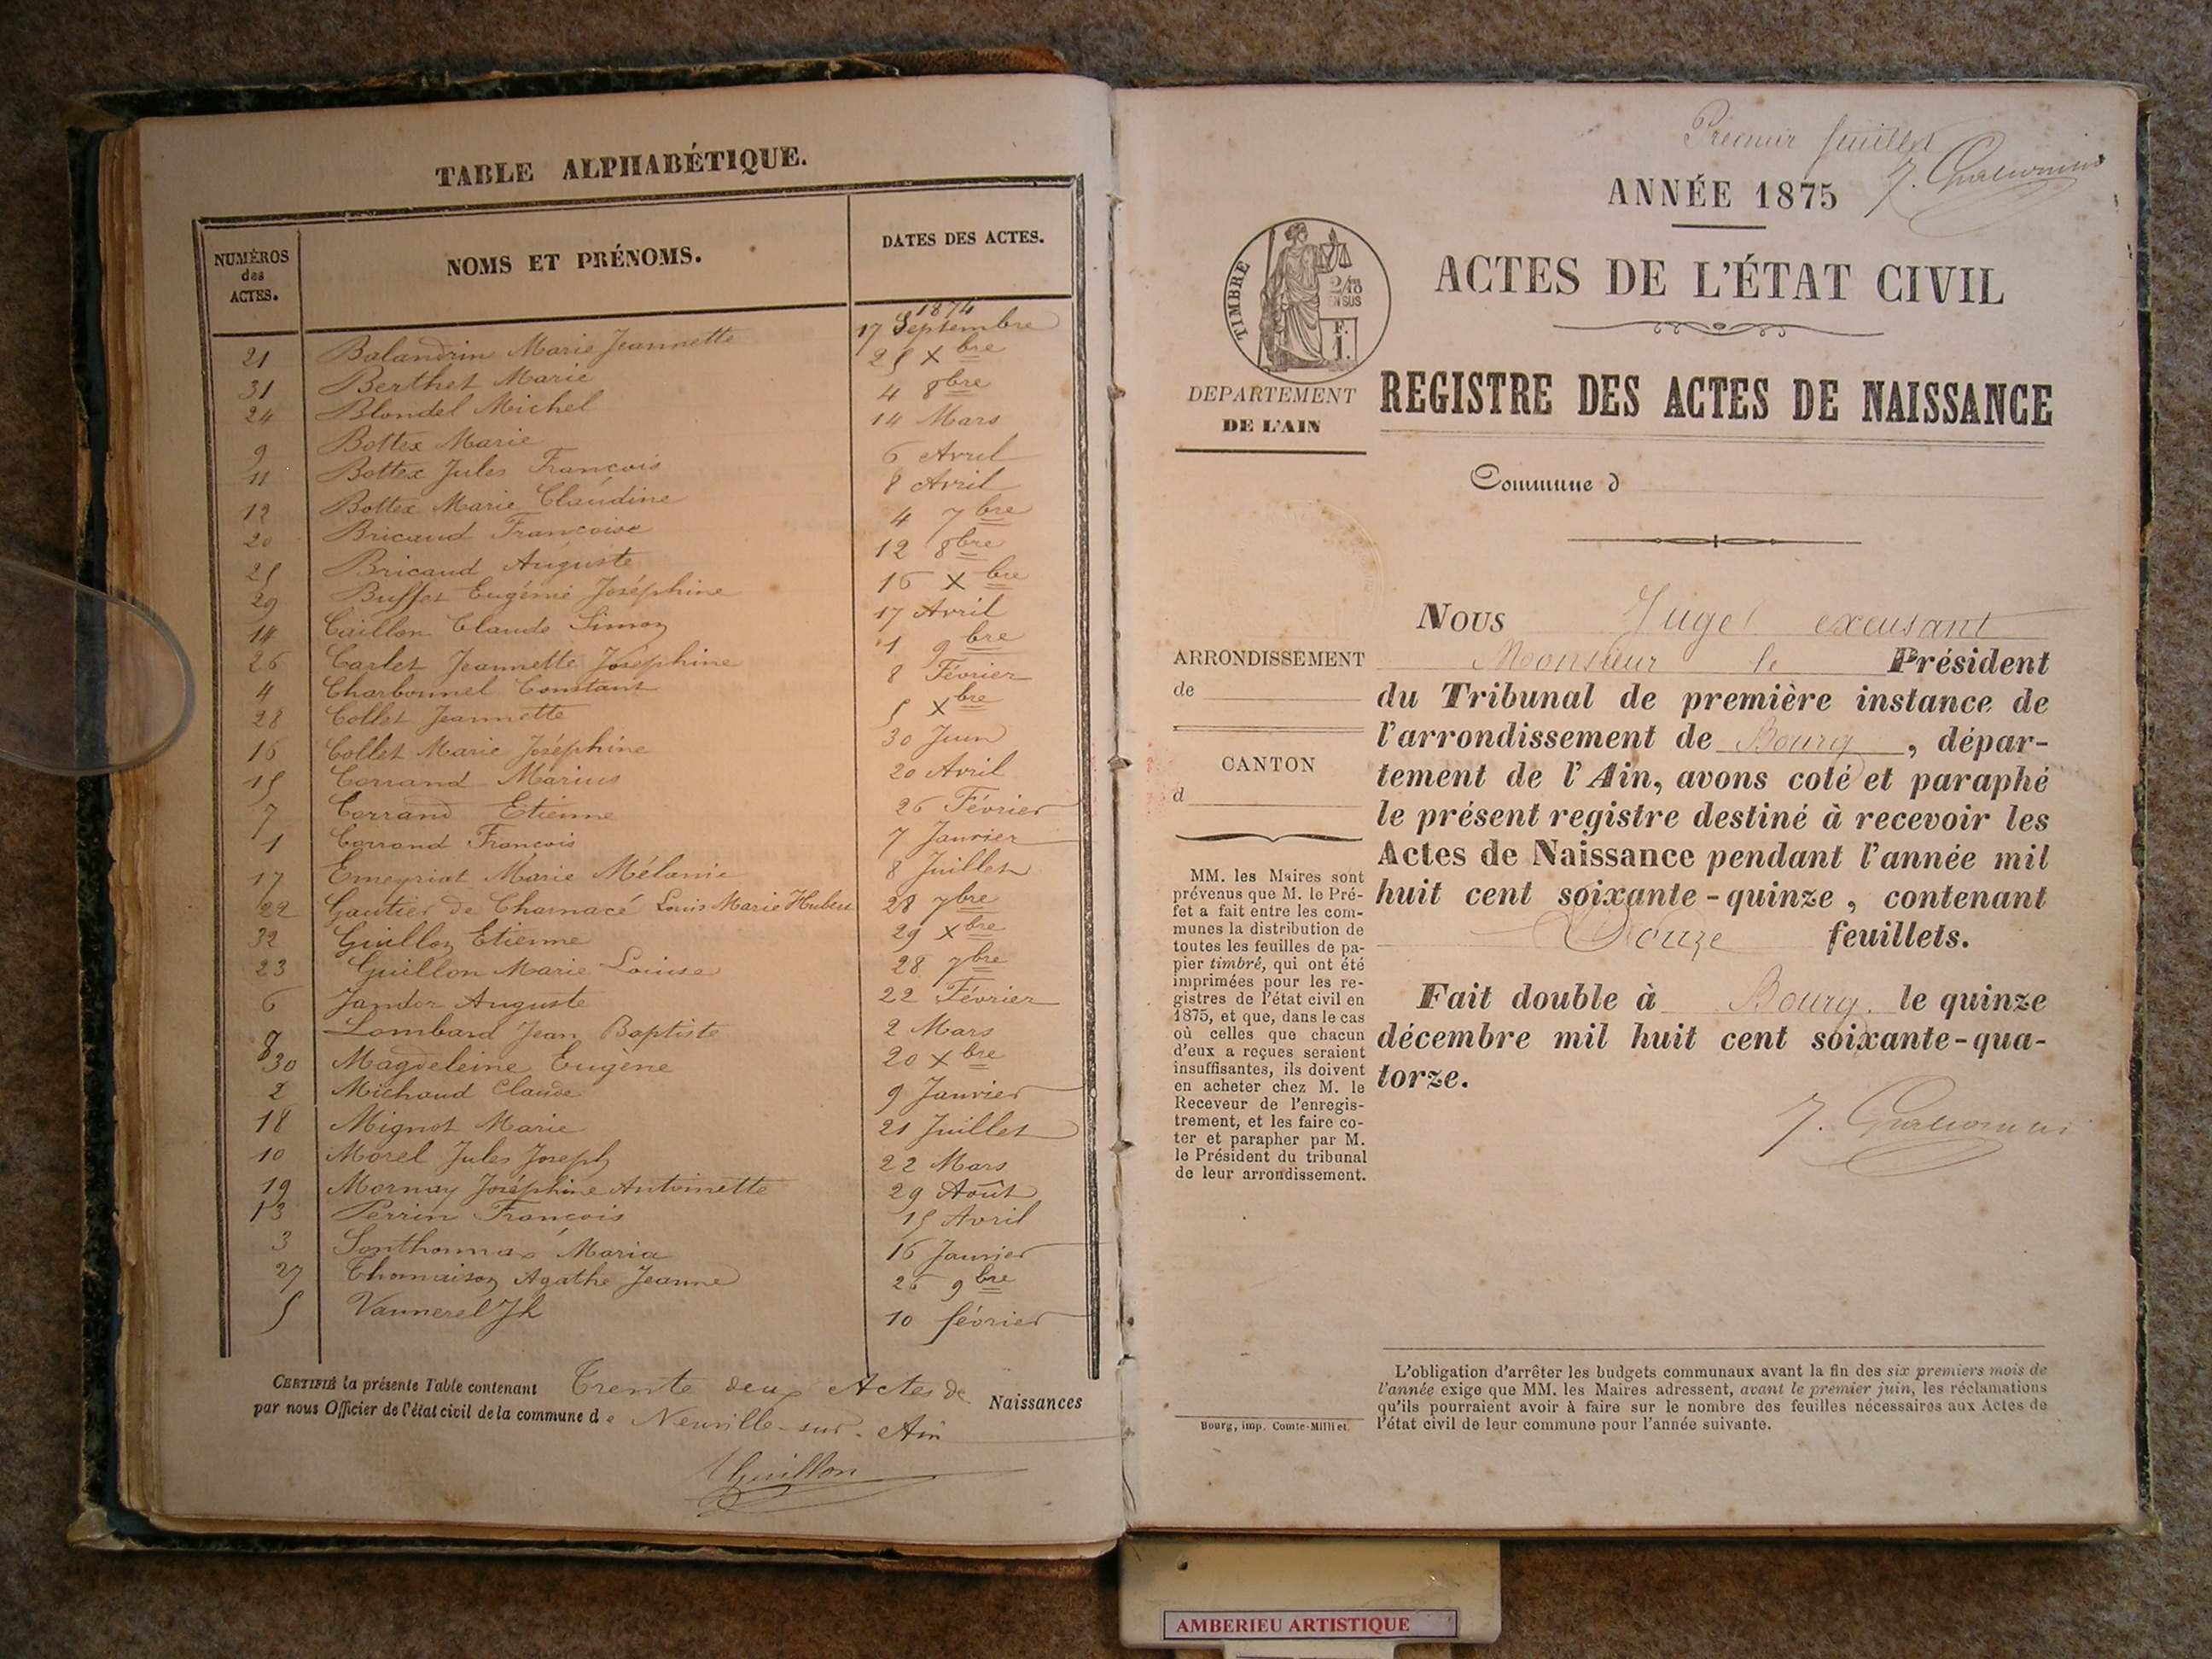 TABLE ALPHABÉTIQUE.
NUMÉROS des ACTES. NOMS ET PRÉNOMS. DATES DES ACTES.
1874
21 Balandrin Marie Jeannette 17 Septembre
31 Berthet Marie 25 Xbre
24 Blondel Michel 4 8bre
9 Bottex Marie 14 Mars
11 Bottex Jules François 6 Avril
12 Bottex Marie Claudine 8 Avril
20 Bricaud Françoise 4 7bre
25 Bricaud Auguste 12 8bre
29 Buffet Eugénie Joséphine 16 Xbre
14 Caillon Claude Simon 17 Avril
26 Carlet Jeannette Joséphine 1 9bre
4 Charbonnel Constant 8 Février
28 Collet Jeannette 5 Xbre
16 Collet Marie Joséphine 30 Juin
15 Corrand Marius 20 Avril
7 Corrand Etienne 26 Février
1 Corrand François 7 Janvier
17 Emeyriat Marie Mélanie 8 Juillet
22 Gautier de Charnacé Louis Marie Hubert 28 7bre
32 Guillon Etienne 29 Xbre
23 Guillon Marie Louise 28 7bre
6 Jandor Auguste 22 Février
8 Lombard Jean Baptiste 2 Mars
30 Magdeleine Eugène 20 Xbre
2 Michaud Claude 9 Janvier
18 Mignot Marie 21 Juillet
10 Morel Jules Joseph 22 Mars
19 Mornay Joséphine Antoinette 29 Août
13 Perrin François 15 Avril
3 Sonthonnax Maria 16 Janvier
27 Thomaison Agathe Jeanne 26 9bre
5 Vannerel Jh 10 février
CERTIFIÉ la présente Table contenant Trente deux Actes de Naissances
par nous Officier de l'état civil de la commune de Neuville-sur-Ain
Guillon
Premier feuillet
ANNÉE 1875
ACTES DE L'ÉTAT CIVIL
TIMBRE
2/10
EN SUS
F.
1.
DEPARTEMENT
DE L'AIN
REGISTRE DES ACTES DE NAISSANCE
Commune d
NOUS Juge excusant
Monsieur le Président
du Tribunal de première instance de
l'arrondissement de Bourg, dépar-
tement de l'Ain, avons coté et paraphé
le présent registre destiné à recevoir les
Actes de Naissance pendant l'année mil
huit cent soixante-quinze, contenant
Douze feuillets.
Fait double à Bourg, le quinze
décembre mil huit cent soixante-qua-
torze.
ARRONDISSEMENT
de
CANTON
d
MM. les Maires sont
prévenus que M. le Pré-
fet a fait entre les com-
munes la distribution de
toutes les feuilles de pa-
pier timbré, qui ont été
imprimées pour les re-
gistres de l'état civil en
1875, et que, dans le cas
où celles que chacun
d'eux a reçues seraient
insuffisantes, ils doivent
en acheter chez M. le
Receveur de l'enregis-
trement, et les faire co-
ter et parapher par M.
le Président du tribunal
de leur arrondissement.
Bourg, imp. Comte-Milliet.
L'obligation d'arrêter les budgets communaux avant la fin des six premiers mois de
l'année exige que MM. les Maires adressent, avant le premier juin, les réclamations
qu'ils pourraient avoir à faire sur le nombre des feuilles nécessaires aux Actes de
l'état civil de leur commune pour l'année suivante.
AMBERIEU ARTISTIQUE